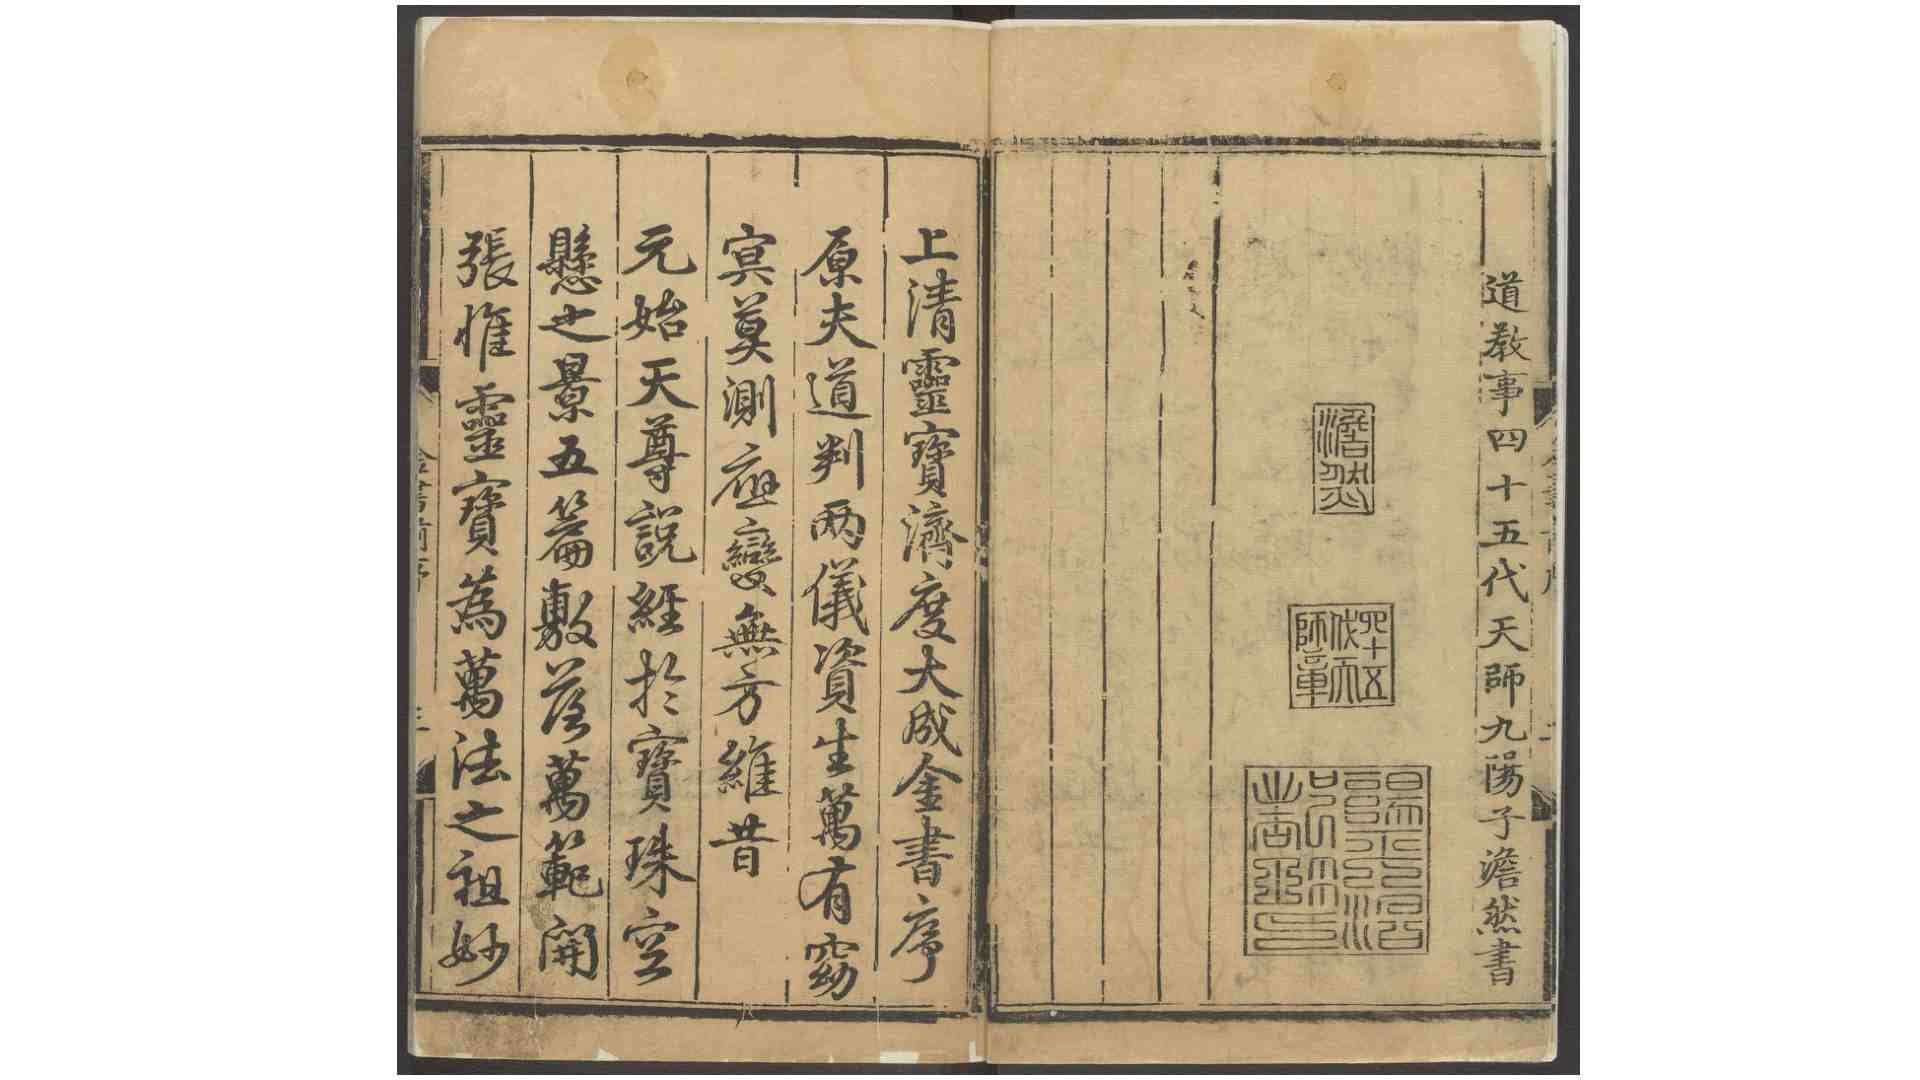 道教事四十五代天師九陽子澹然書
澹然
四十五代天師章
陽平治都功印
上清靈寶濟度大成金書序
原夫道判兩儀資生萬有窈
冥莫測應變無方維昔
元始天尊說經於寶珠空
懸之景五篇敷落萬範開
張惟靈寶為萬法之祖妙
金書前序